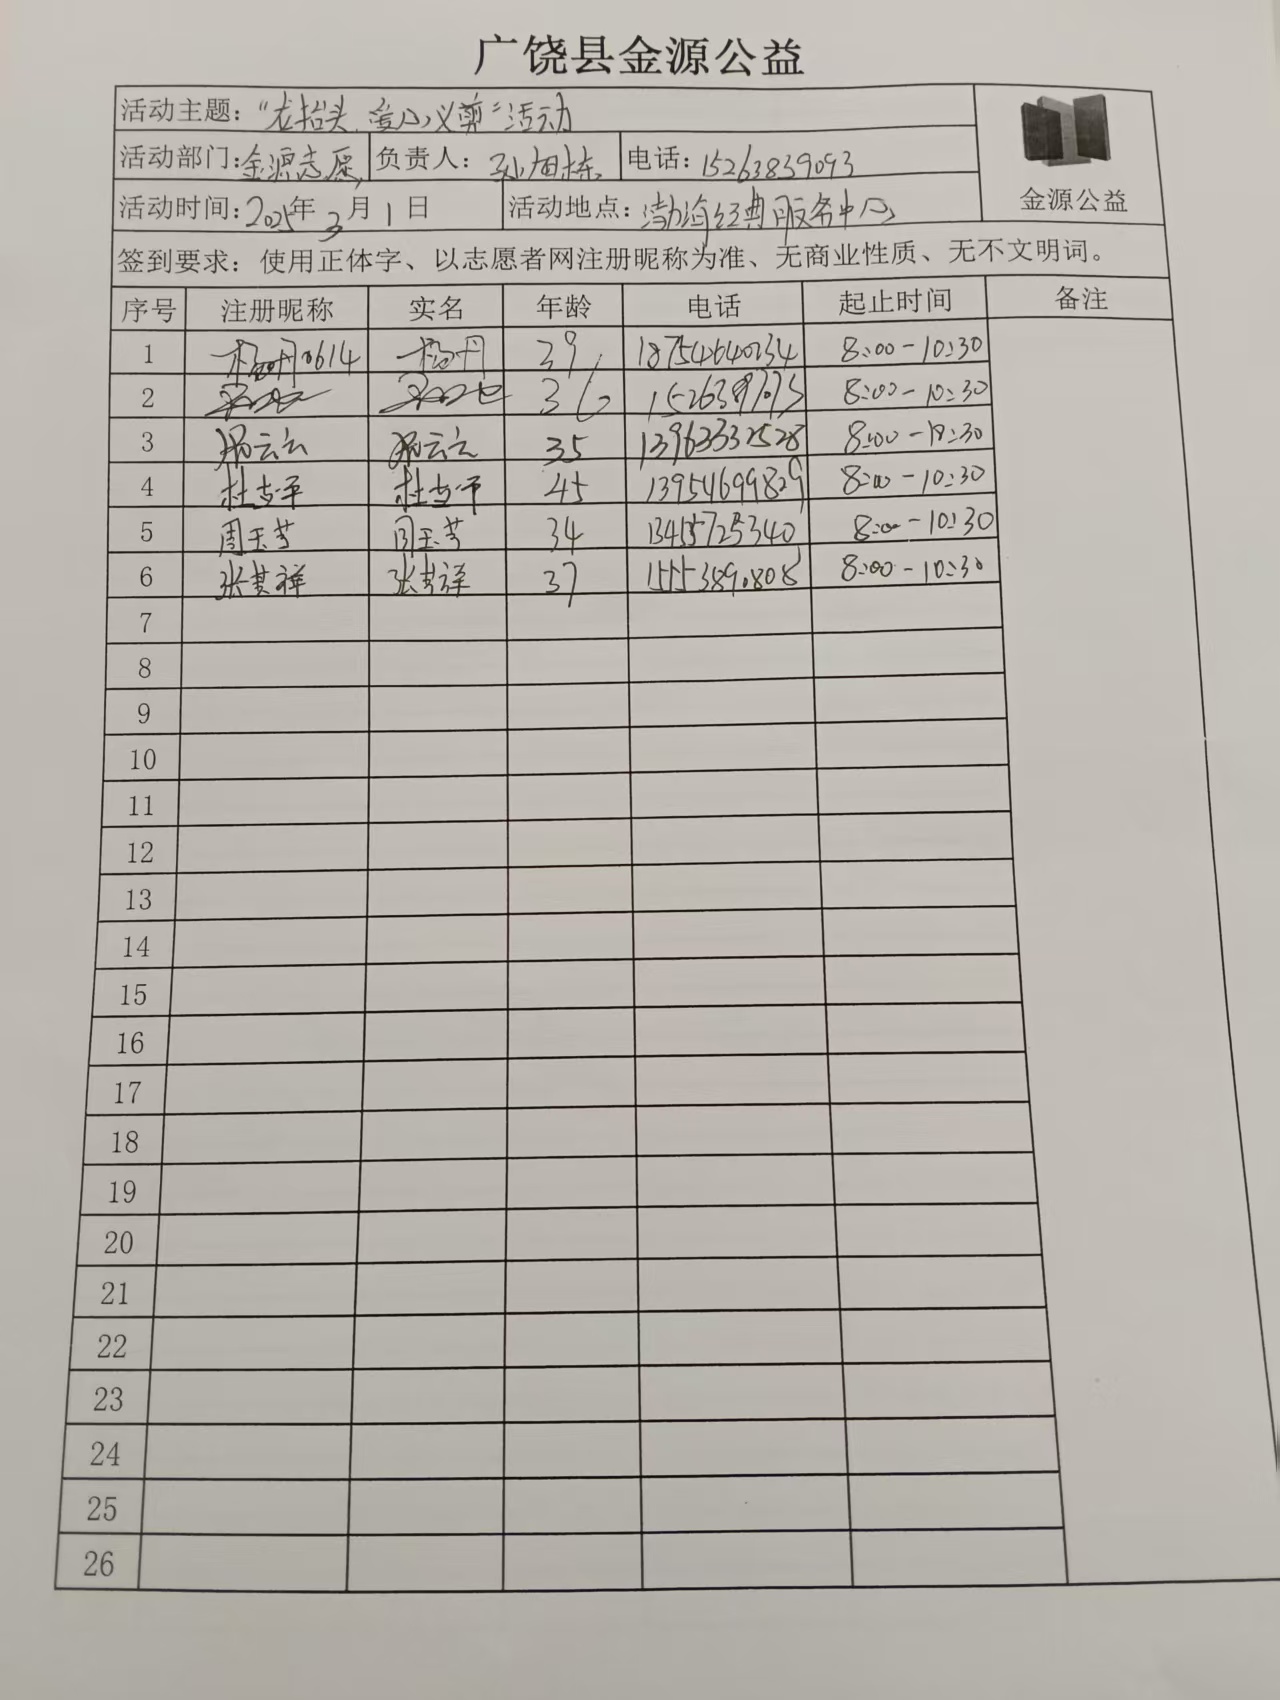 广饶县金源公益
活动主题:"龙抬头、爱心义剪"活动
活动部门:金源志愿 负责人: 电话:15263839093
活动时间:2025年3月1日 活动地点:渤海经典服务中心
金源公益
签到要求:使用正体字、以志愿者网注册昵称为准、无商业性质、无不文明词。
序号 注册昵称 实名 年龄 电话 起止时间 备注
1 杨丹0614 杨丹 39 18754640234 8:00-10:30
2 36 8:00-10:30
3 35 13963332528 8:00-10:30
4 45 13954699829 8:00-10:30
5 周玉芳 周玉芳 34 13455725340 8:00-10:30
6 张其祥 张其祥 37 8:00-10:30
7
8
9
10
11
12
13
14
15
16
17
18
19
20
21
22
23
24
25
26